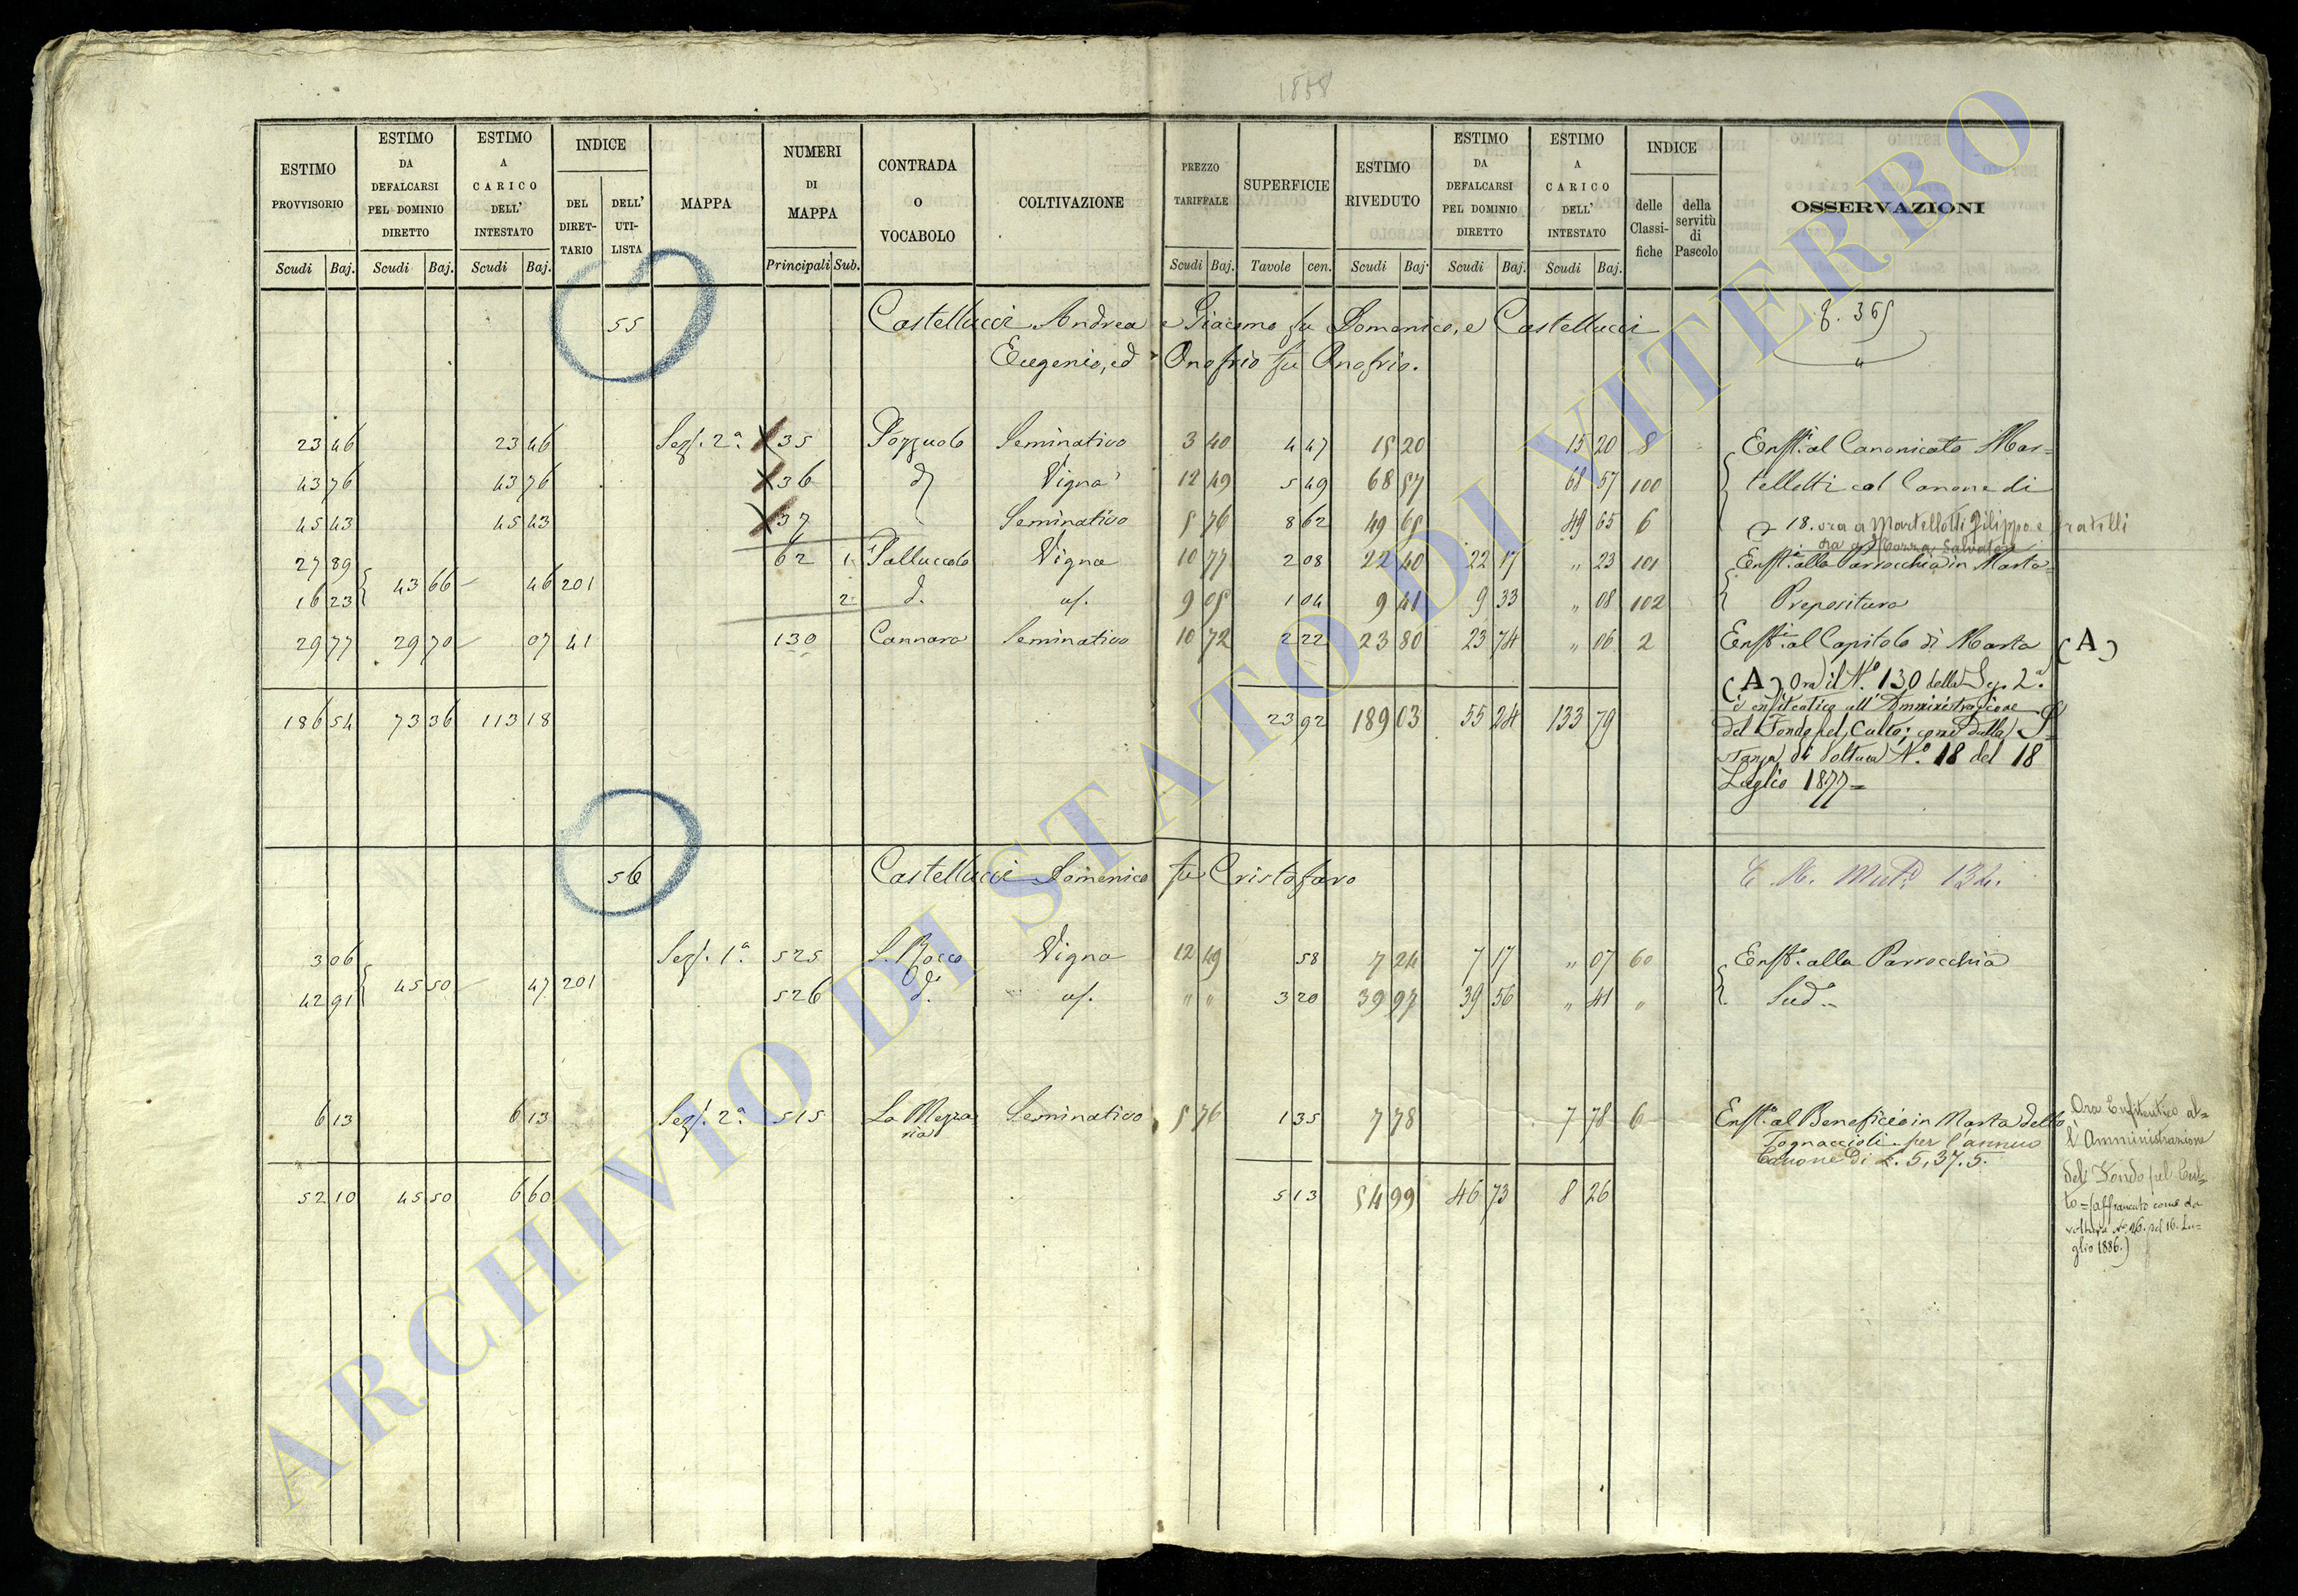 1858
ESTIMO PROVVISORIO | ESTIMO DA DEFALCARSI PEL DOMINIO DIRETTO | ESTIMO A CARICO DELL' INTESTATO | INDICE | MAPPA | NUMERI DI MAPPA | CONTRADA O VOCABOLO | COLTIVAZIONE | PREZZO TARIFFALE | SUPERFICIE | ESTIMO RIVEDUTO | ESTIMO DA DEFALCARSI PEL DOMINIO DIRETTO | ESTIMO A CARICO DELL' INTESTATO | INDICE | OSSERVAZIONI
DEL DIRET-TARIO | DELL' UTI-LISTA | delle Classi-fiche | della servitù di Pascolo
Scudi | Baj. | Scudi | Baj. | Scudi | Baj. | Principali | Sub. | Scudi | Baj. | Tavole | cen. | Scudi | Baj. | Scudi | Baj. | Scudi | Baj.
55 Castellucci Andrea e Giacomo fu Domenico, e Castellucci
Eugenio, ed Onofrio fu Onofrio.
23 46 | 23 46 | Sez. 2ª | 35 | Pozzuolo | Seminativo | 3 40 | 4 47 | 15 20 | 15 20 | 8 | Enft. al Canonicato Mar=
43 76 | 43 76 | 36 | d. | Vigna | 12 49 | 5 49 | 68 57 | 68 57 | 100 | tellotti col Canone di
45 43 | 45 43 | 37 | Seminativo | 5 76 | 8 62 | 49 65 | 49 65 | 6 | 18. ora a Martellotti Filippo e fratelli
ora a Salvatore
27 89 | 62 | 1 | Palluccolo | Vigna | 10 77 | 2 08 | 22 40 | 22 17 | " 23 | 101 | Enft. alla Parrocchia in Marta=
43 66 | 46 | 201
16 23 | 2 | d. | 9 05 | 1 04 | 9 41 | 9 33 | " 08 | 102 | Prepositura
29 77 | 29 70 | 07 | 41 | 130 | Cannara | Seminativo | 10 72 | 2 22 | 23 80 | 23 74 | " 06 | 2 | Enft. al Capitolo di Marta (A)
(A) Ora il Nº 130 della Sez. 2ª
186 54 | 73 36 | 113 18 | 23 92 | 189 03 | 55 24 | 133 79 | è enfiteutico all'Amministrazione
del Fondo pel Culto; come dalla
di Voltura Nº 18 del 18
Luglio 1877=
56 Castellucci Domenico fu Cristofaro
134.
3 06 | Sez. 1ª | 525 | S. Rocco | Vigna | 12 49 | 58 | 7 24 | 7 17 | " 07 | 60 | Enft. alla Parrocchia
45 50 | 47 | 201
42 91 | 526 | d. | " " | 3 20 | 39 97 | 39 56 | " 41 | " | Sudª=
6 13 | 6 13 | Sez. 2ª | 515 | La Mezza | Seminativo | 5 76 | 1 35 | 7 78 | 7 78 | 6 | Enft. al Beneficio in Marta dello
ria
Tognaccioli per l'annuo
Canone di L. 5,37.5.
52 10 | 45 50 | 6 60 | 5 13 | 54 99 | 46 73 | 8 26
Ora Enfiteutico al=
l'Amministrazione
del Fondo pel Cul=
to=(affrancato come da
voltura Nº 26. del 16. Lu=
glio 1886.)
ARCHIVIO DI STATO DI VITERBO